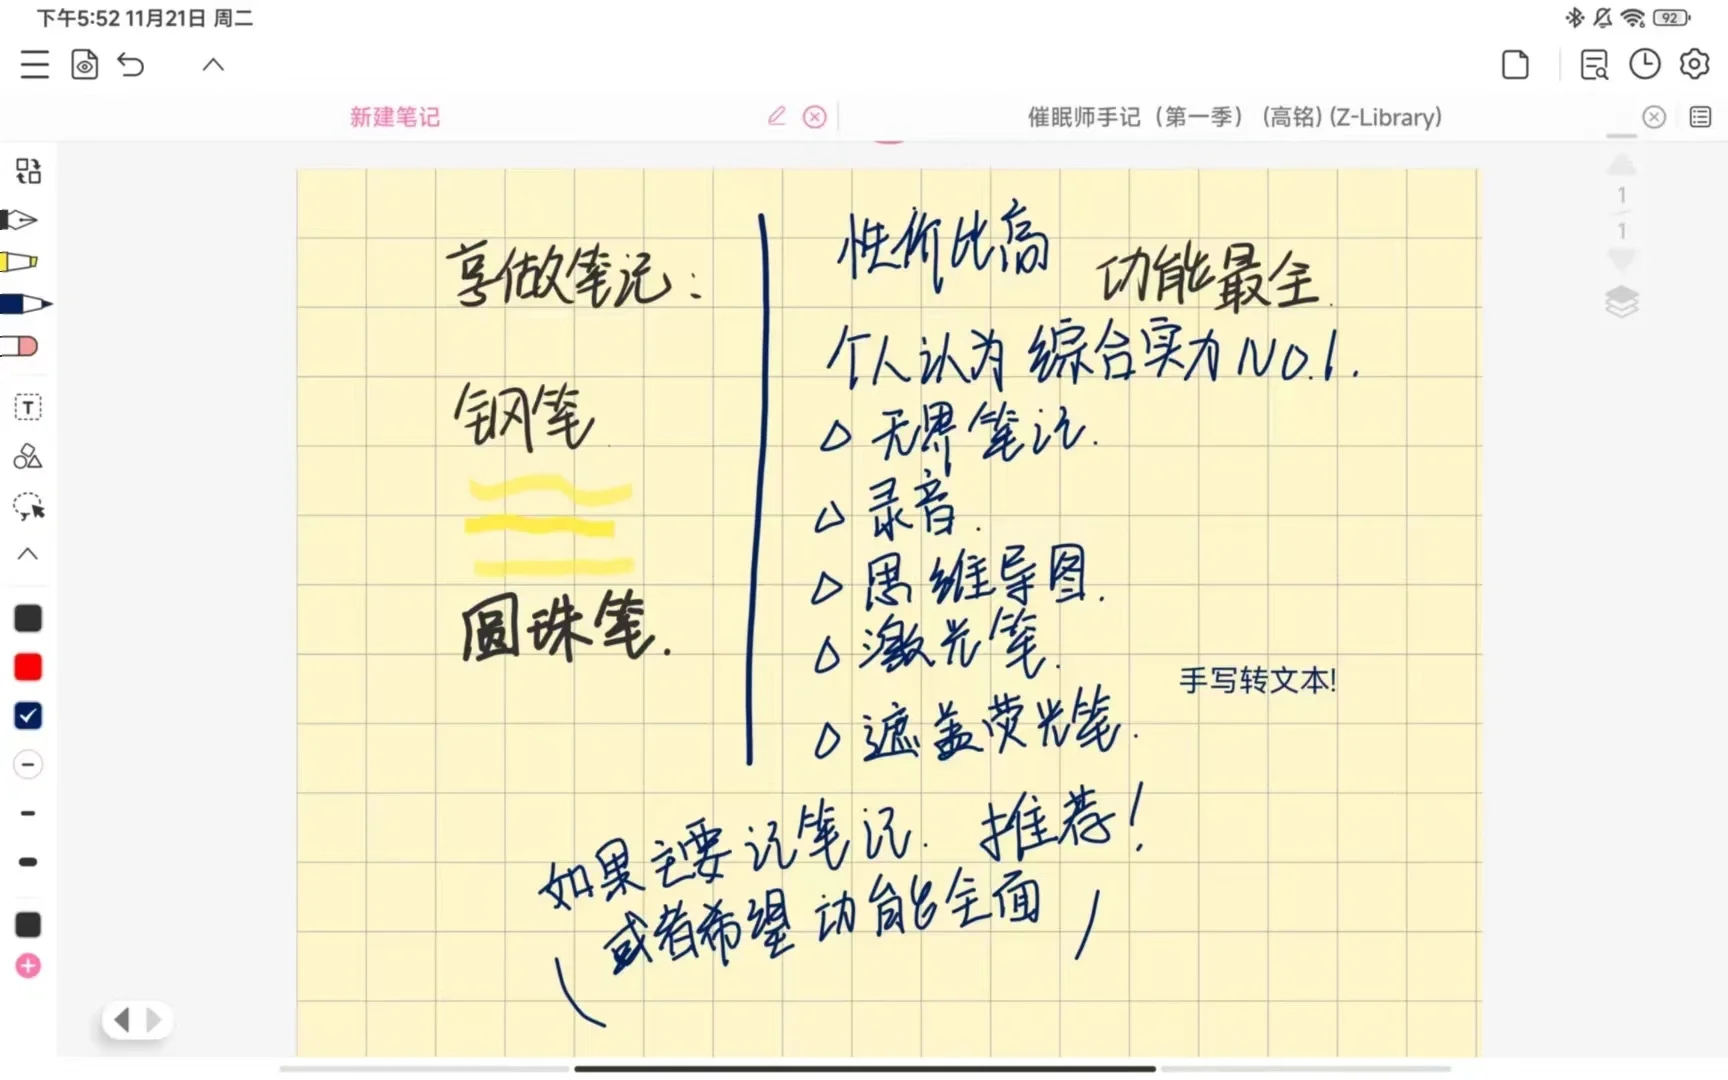 下午5:52 11月21日 周二
92
新建笔记
催眠师手记（第一季） (高铭) (Z-Library)
1
1
T
享做笔记：
钢笔
圆珠笔.
性价比高 功能最全.
个人认为 综合实力 NO.1.
△ 无界笔记.
△ 录音.
△ 思维导图.
△ 激光笔.
△ 遮盖荧光笔.
手写转文本!
如果主要记笔记. 推荐！
(或者希望功能全面)